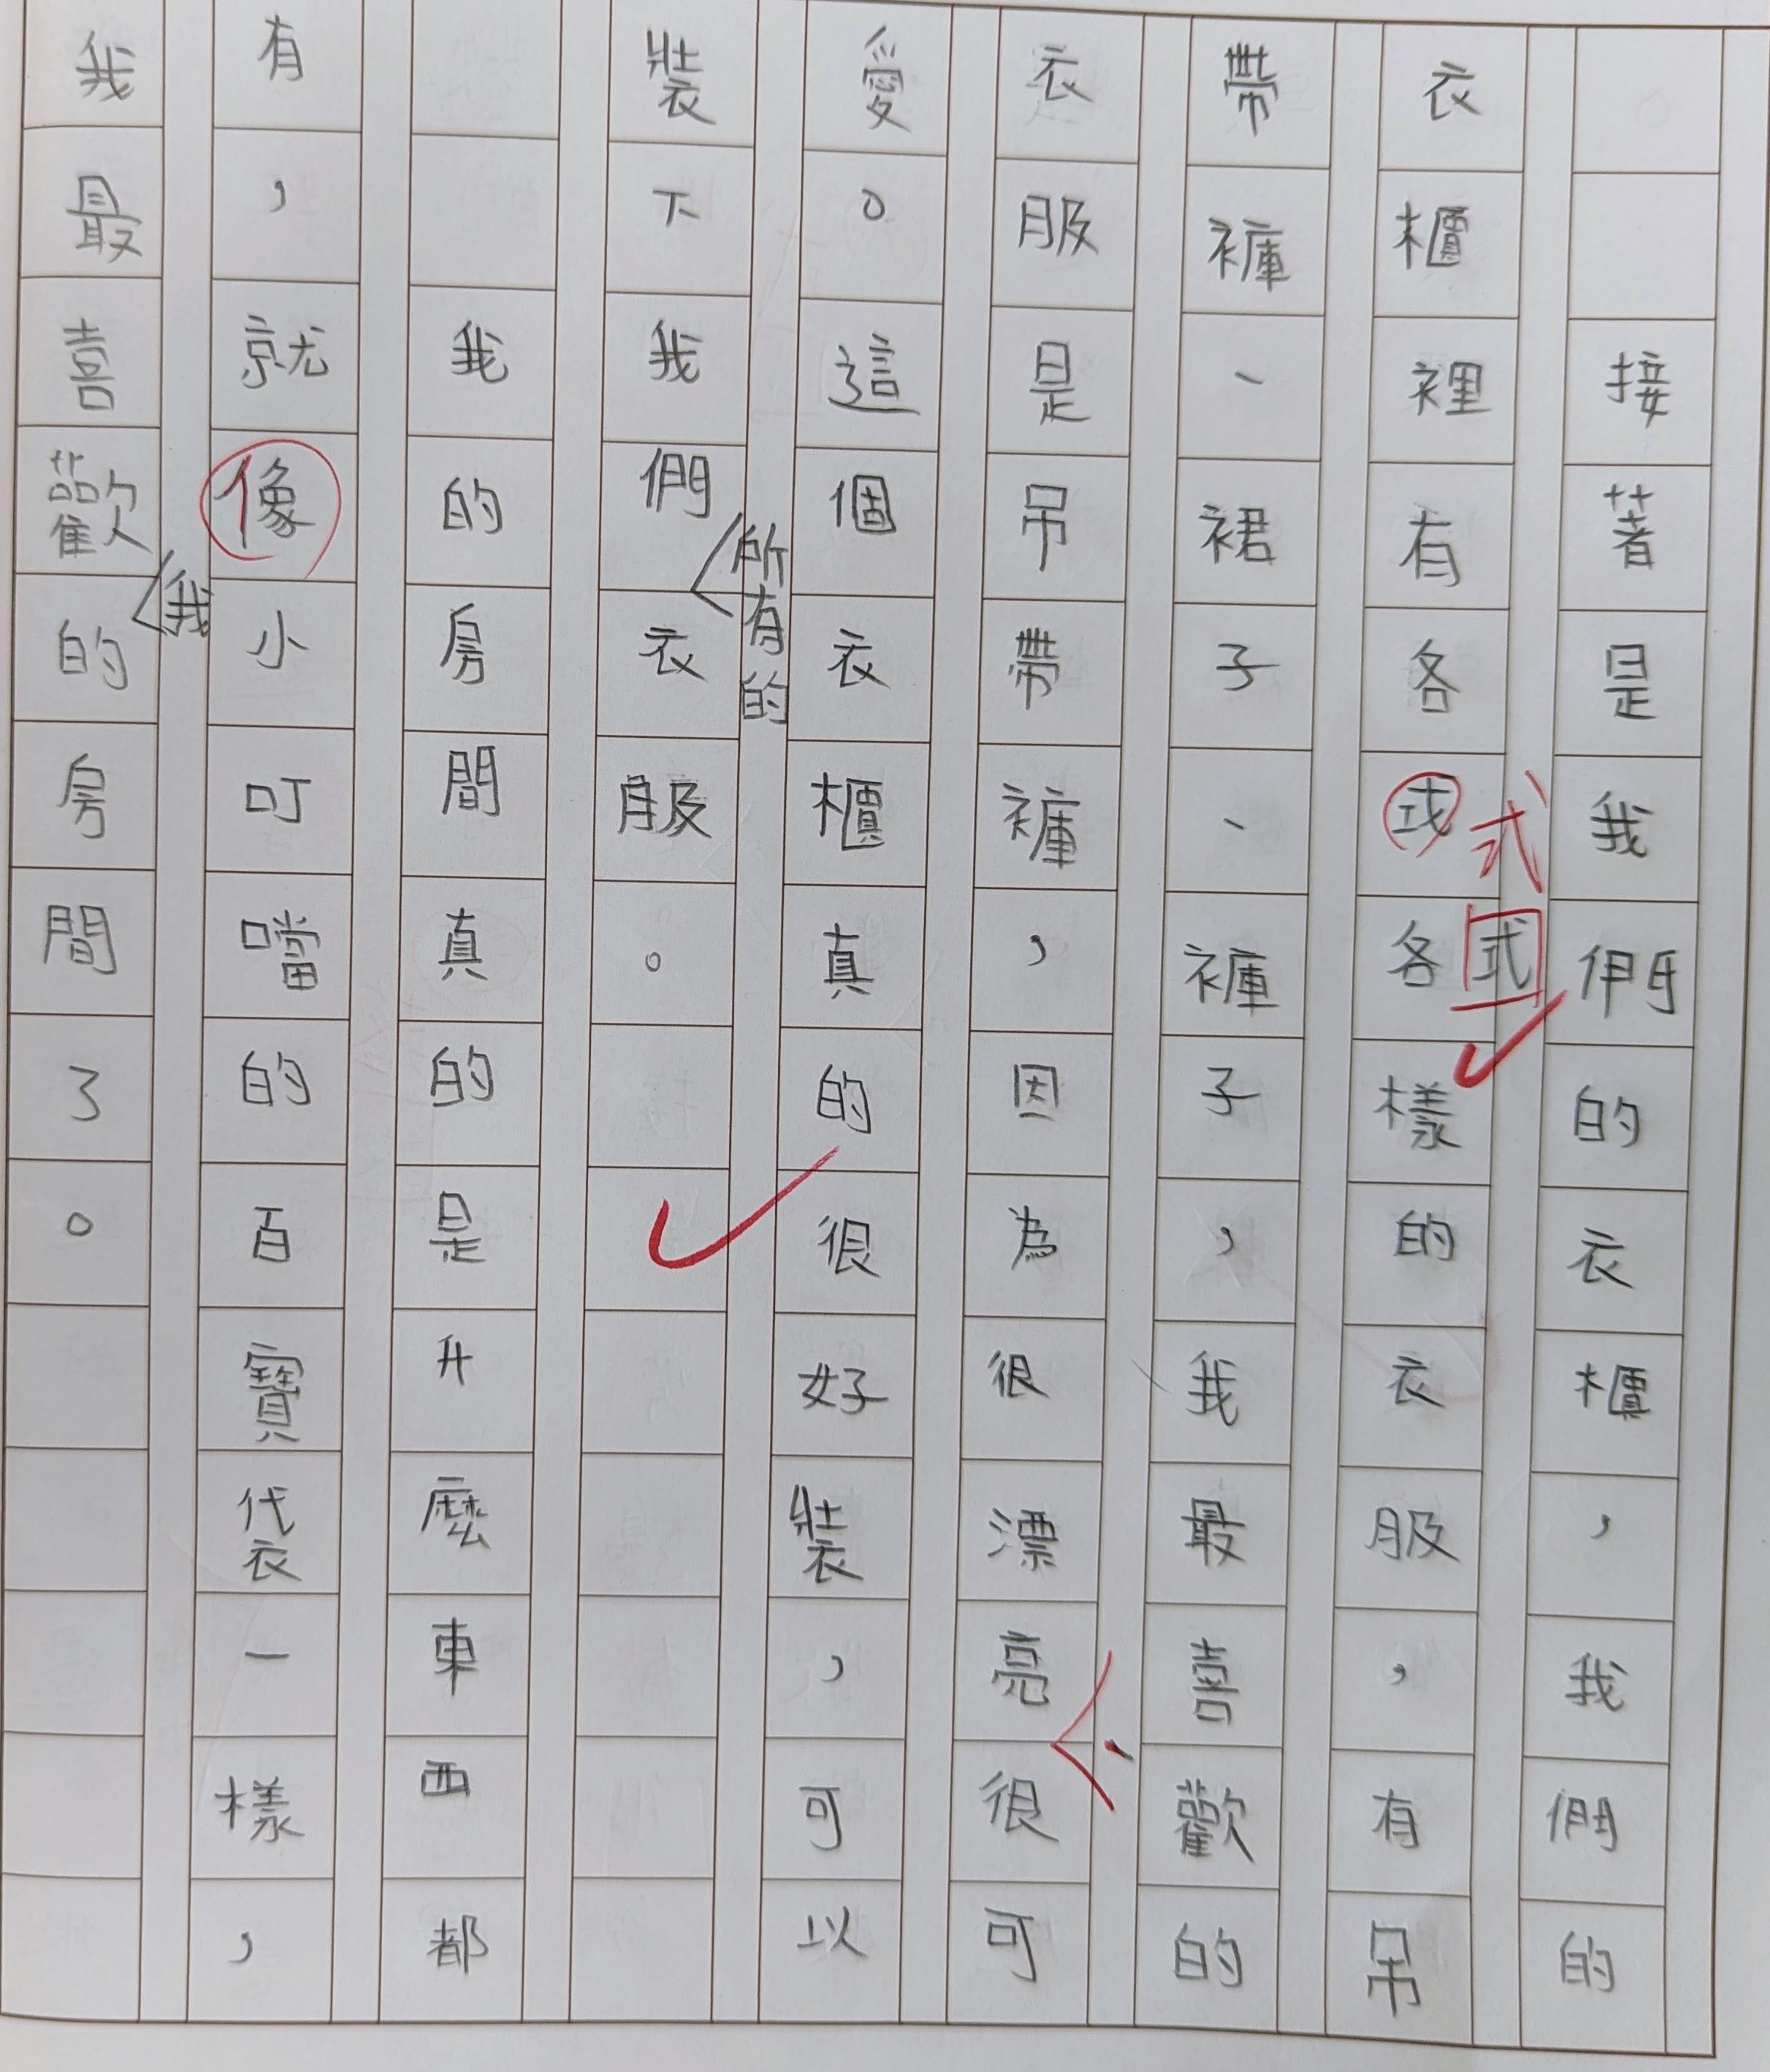 接著是我們的衣櫃，我們的
衣櫃裡有各式各樣的衣服，有吊
式
式
帶褲、裙子、褲子，我最喜歡的
衣服是吊帶褲，因為很漂亮很可
、
愛。這個衣櫃真的很好裝，可以
裝下我們衣服。
所有的
我的房間真的是什麼東西都
有，就像小叮噹的百寶袋一樣，
我最喜歡的房間了。
我